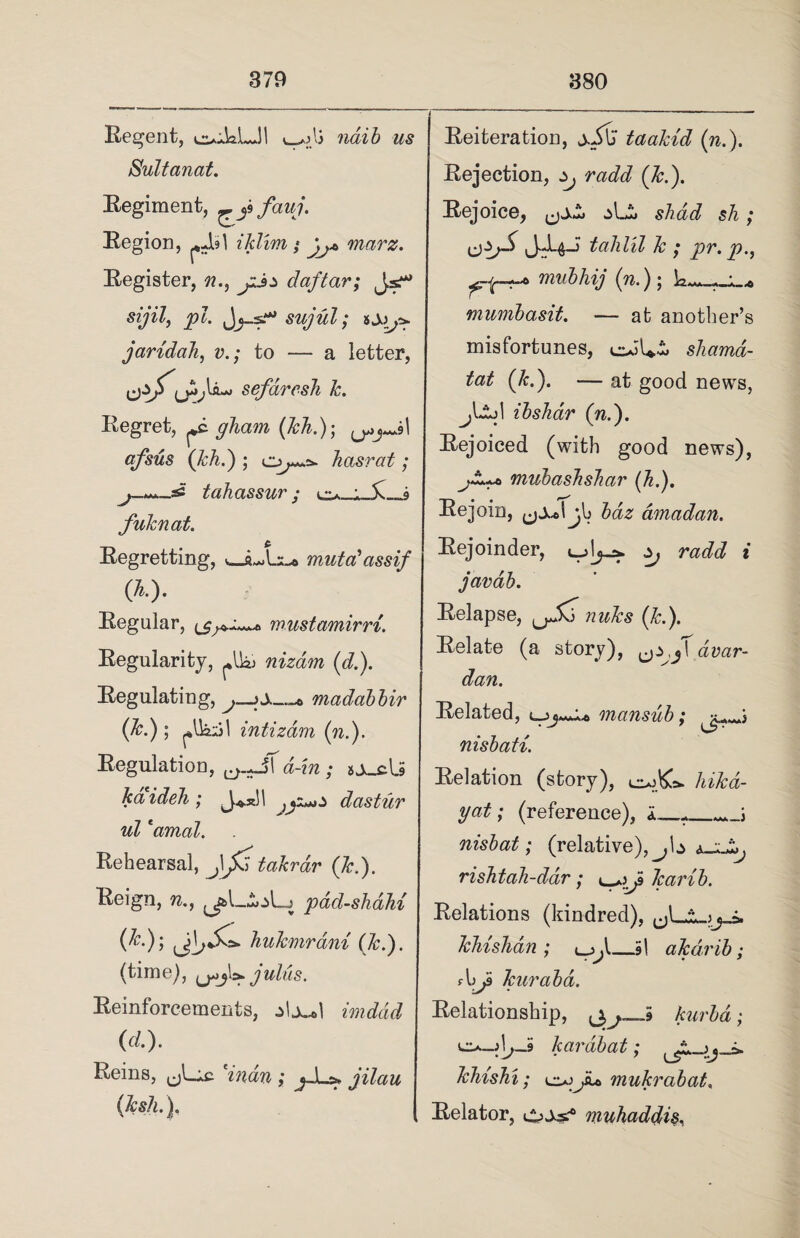 379
380
Regent, نایب السلطنت náib us
Sultanat.
Regiment, فوج fauj.
Region, اقلیم iklím ; مرز marz.
Register, n., دفتر daftar; سجل
sijil, pl. سجول sujúl ; جریده
jarídah, v.; to — a letter,
سفارش کردن sefáresh k.
Regret, غم gham (kh.); افسوس
afsús (kh.) ; حسرت hasrat ;
تحسر tahassur ; فکنت
fuknat.
Regretting, متأسف muta'assif
(h.).
Regular, مستمری mustamirrí.
Regularity, نظام nizám (d.).
Regulating, مدبر madabbir
(k.) ; انتظام intizám (n.).
Regulation, آئین á-ín ; قاعده
ká'ideh ; دستور العمل dastúr
ul 'amal.
Rehearsal, تکرار takrár (k.).
Reign, n., پادشاهی pád-sháhí
(k.); حکمرانی hukmrání (k.).
(time), جلوس julús.
Reinforcements, امداد imdád
(d.).
Reins, عنان 'inán ; جلو jilau
(ksh.).
Reiteration, تاکید taakíd (n.).
Rejection, رد radd (k.).
Rejoice, شاد شدن shád sh ;
تهلیل کردن tahlíl k ; pr. p.,
مبهج mubhij (n.) ; منبسط
mumbasit. — at another's
misfortunes, شماتت shamá-
tat (k.). — at good news,
ابشار ibshár (n.).
Rejoiced (with good news),
مبشر mubashshar (h.).
Rejoin, باز آمدن báz ámadan.
Rejoinder, رد جواب radd i
javáb.
Relapse, نکس nuks (k.).
Relate (a story), آوردن ávar-
dan.
Related, منسوب mansúb ; نسبتی
nisbatí.
Relation (story), حکایت hiká-
yat ; (reference), نسبة
nisbat ; (relative), رشته دار
rishtah-dár ; قریب karíb.
Relations (kindred), خویشان
khíshán ; اقارب akárib ;
قرباء kurabá.
Relationship, قربی kurbá ;
قرابت karábat ; خویشی
khíshí ; مقربت mukrabat.
Relator, محدث muhaddis.